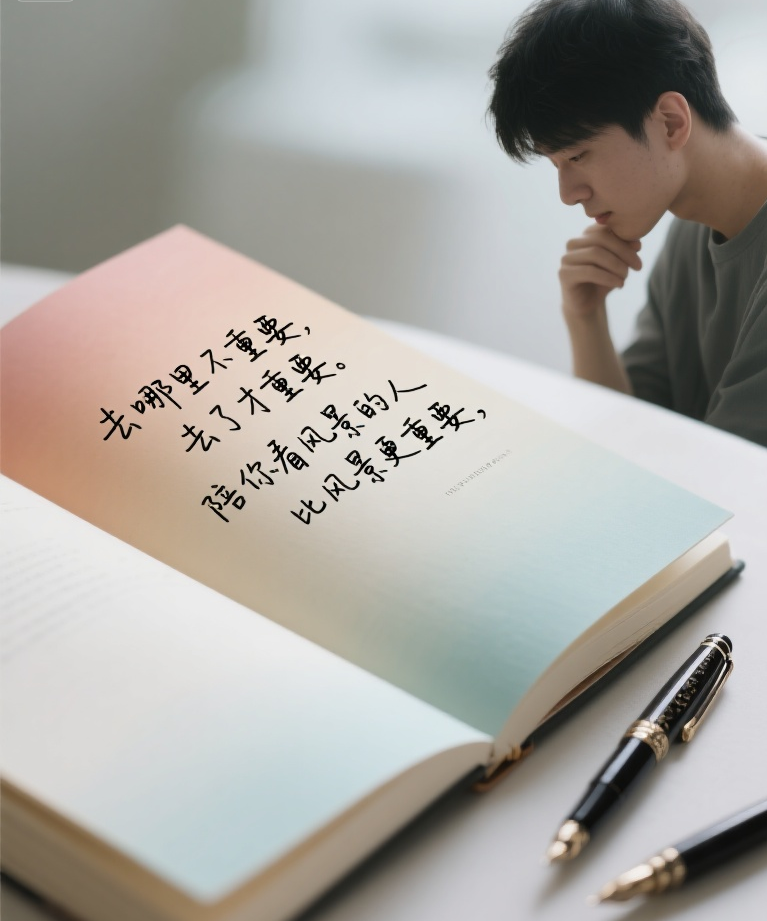 去哪里不重要，
去了才重要。
陪你看风景的人
比风景更重要，